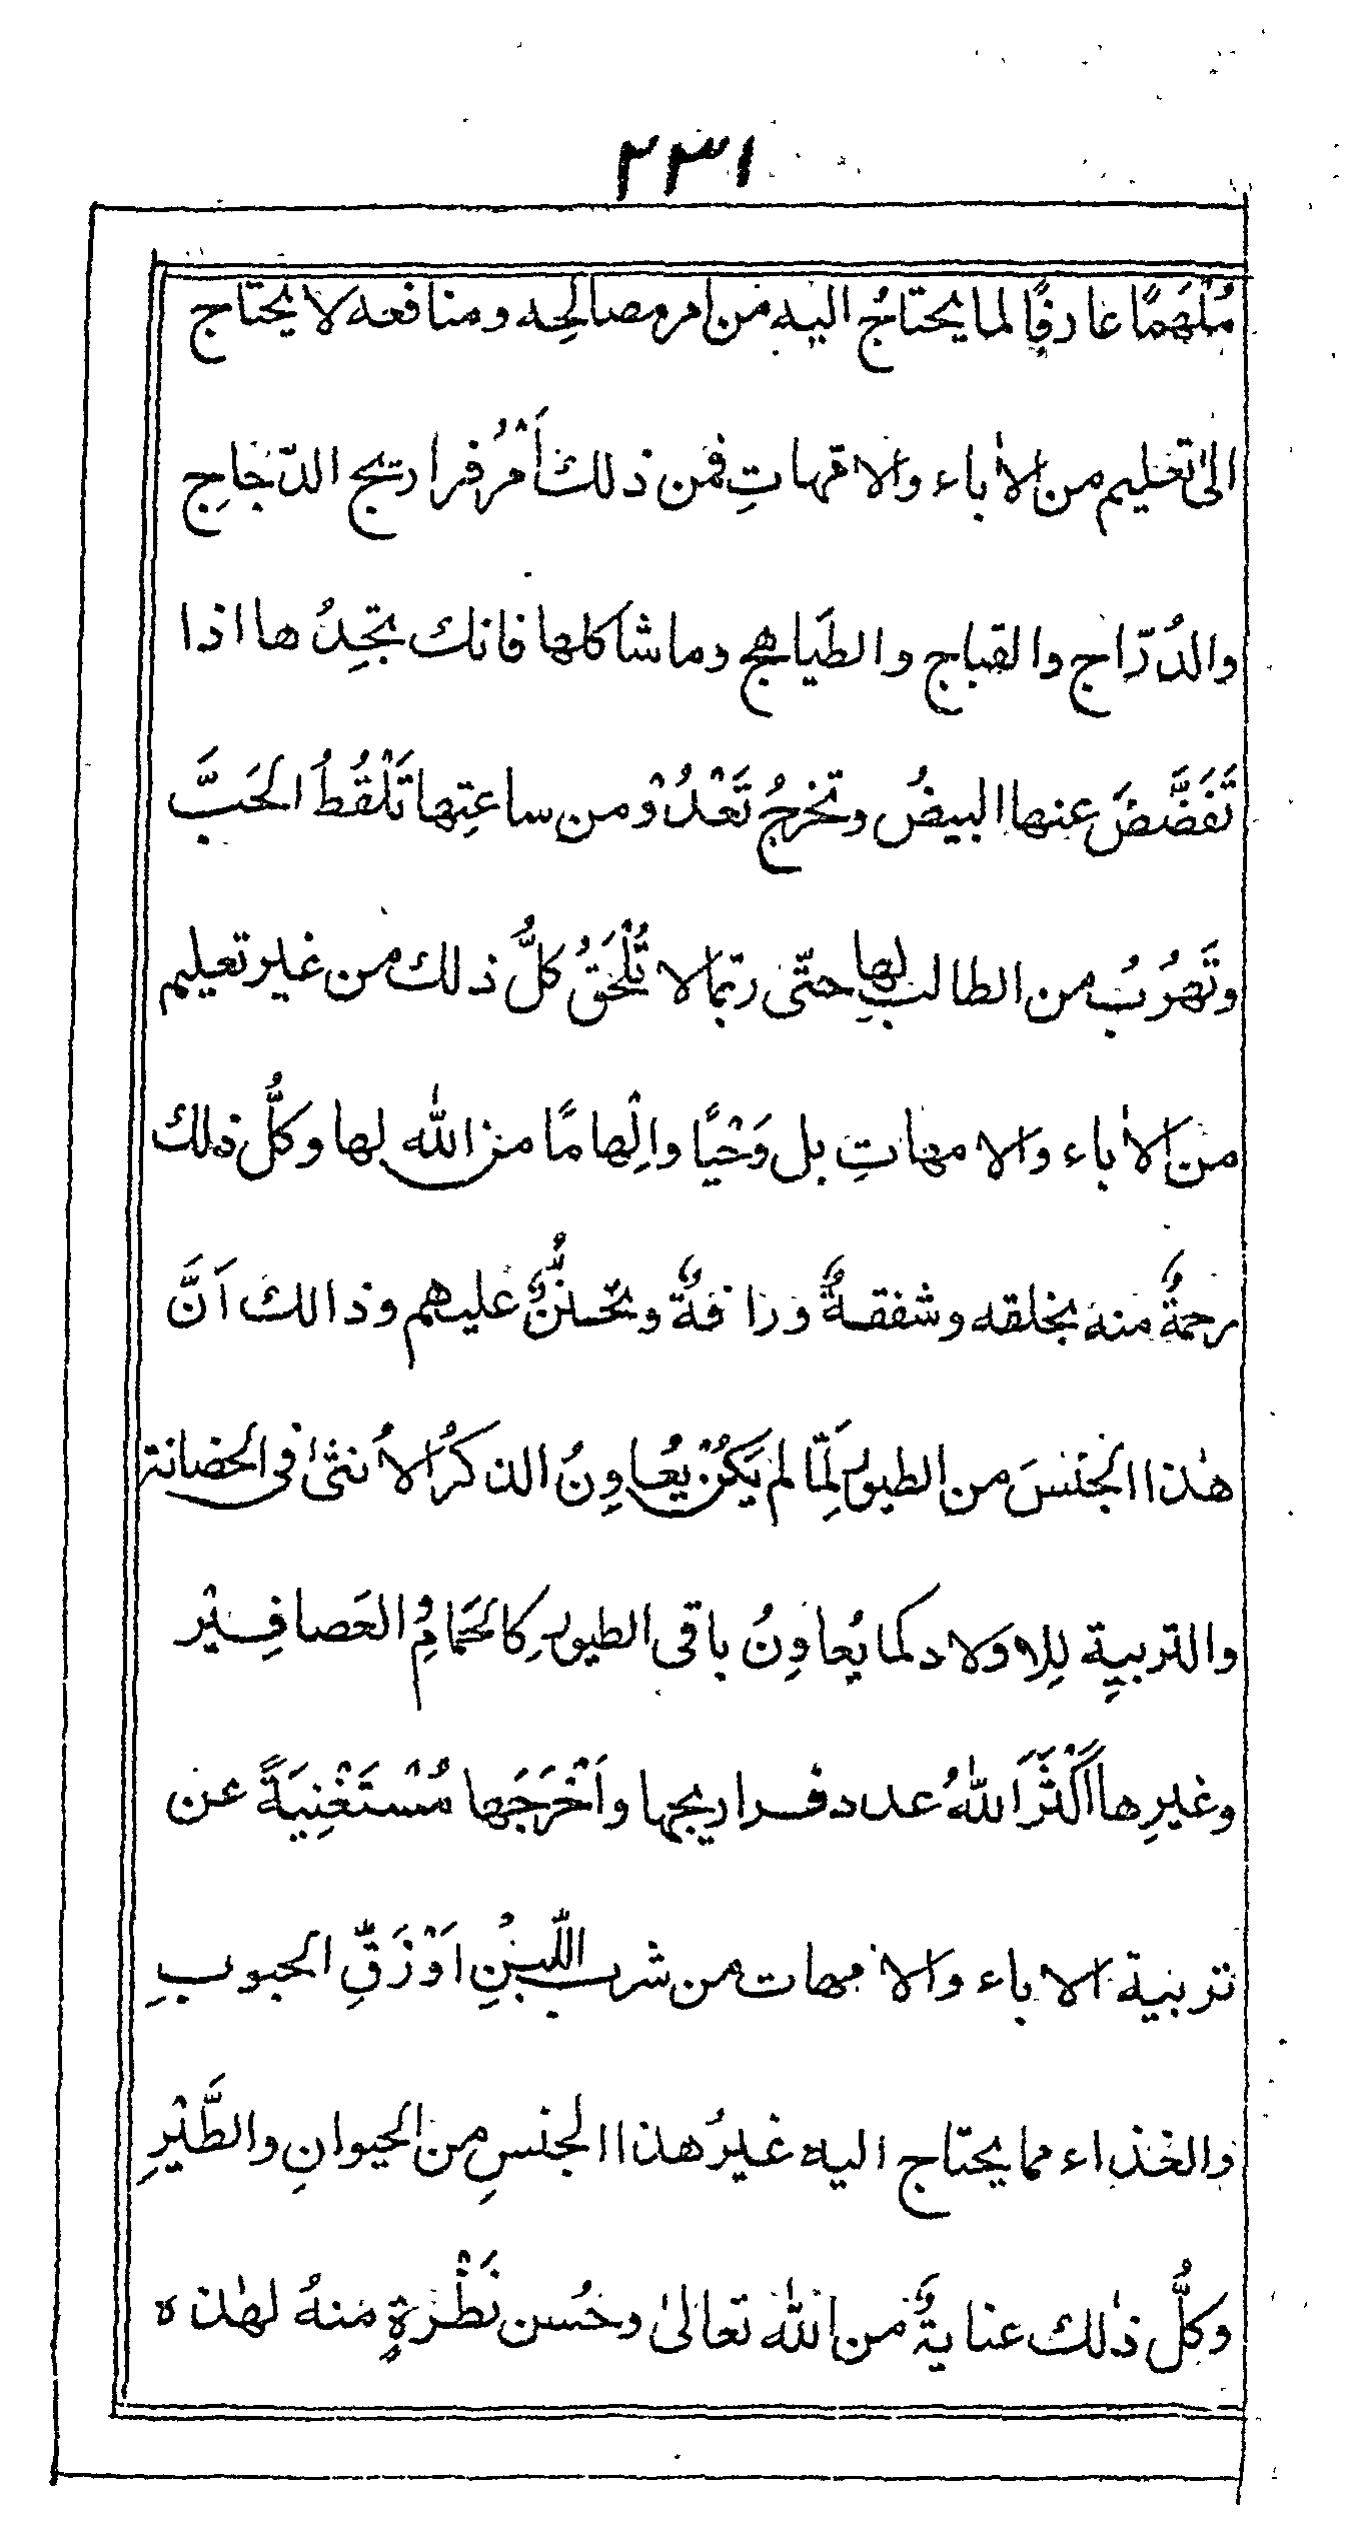 ٢٣١
مُلْهَمًا عارفًا لما يحتاجُ اليه من امر مصالحِه ومنافعه لا يحتاج
الىٰ تعليم من الاٰباء والامّهاتِ فمن ذلك اَمْرُ فراريج الدّجاجِ
والدُرّاج والقباج والطَياهج وما شاكلها فانك تجِدُها اذا
تَفَضَّضَ عنها البيضُ وتخرجُ تَعْدُوْ ومن ساعتِها تَلْقُطُ الحَبَّ
وتَهرُبُ من الطالبِ لها حتّى ربّما لا تُلْحَقُ كلُّ ذلك من غير تعليم
من الاٰباء والامهاتِ بل وَحْيًا واِلْهامًا من اللّٰه لها وكلُّ ذلك
رحمةٌ منه بخلقه وشفقةٌ ورافةٌ وتحسننٌ عليهم وذالك اَنَّ
هٰذا الجنسَ من الطيورِ لَمّا لم يَكُنْ يُعاوِنُ الذكرُ الاُنثىٰ فى الحضانة
والتربيةِ لِلاولاد كما يُعاوِنُ باقى الطيورِ كالحَمامِ والعَصافِيْر
وغيرِها اَكْثَرَ اللّٰهُ عدد فراريجها واَخْرَجَها مُسْتَغْنِيَةً عن
تربية الاباء والامهات من شرب اللّبنِ اوْ زَقِّ الحبوبِ
والغذاء مما يحتاج اليه غيرُ هذا الجنسِ من الحيوانِ والطَّيْرِ
وكلُّ ذٰلك عنايةٌ من اللّٰه تعالىٰ وحُسن نَظْرَةٍ منهُ لهٰذه